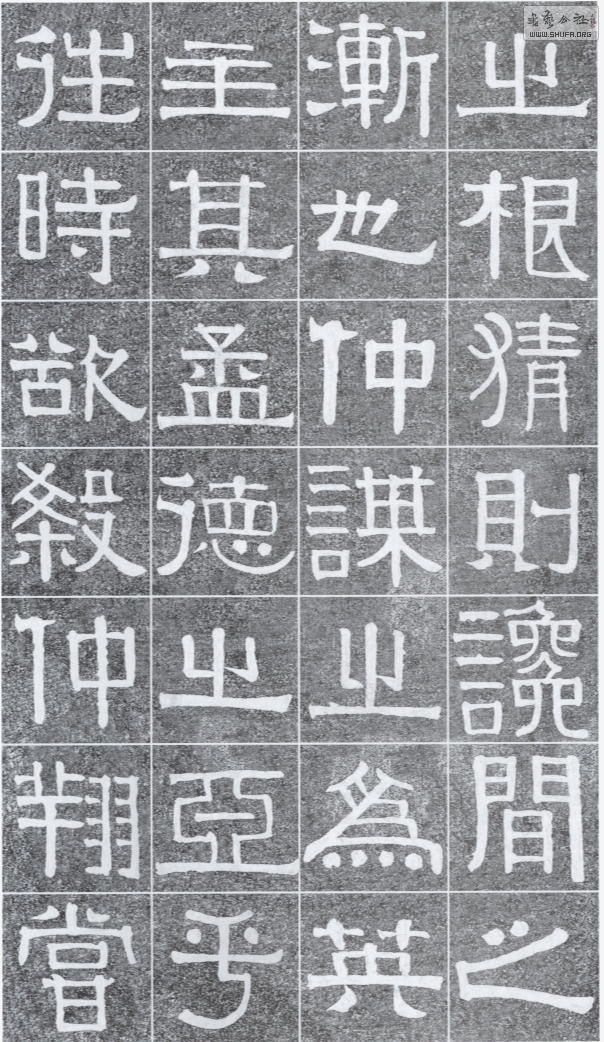 之根猜則讒間之
漸也仲謀之為英
主其孟德之亞乎
往時欲殺仲翔嘗
書藝公社
WWW.SHUFA.ORG